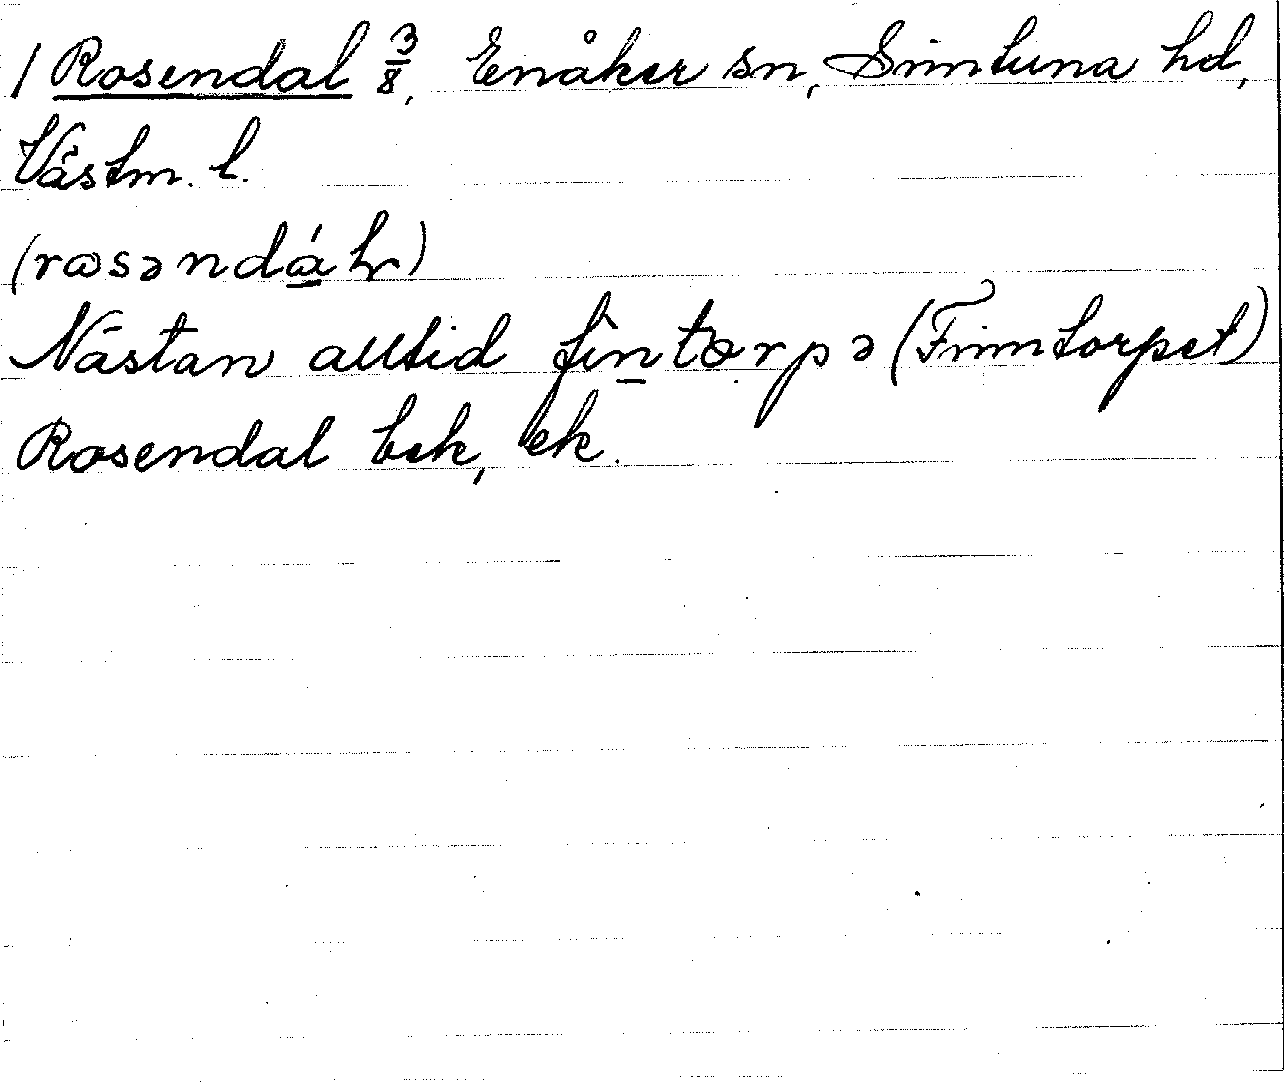 / Rosendal 3/8, Enåker sn, Simtuna hd,
Västm. l.
(rɷsəndál)
Nästan alltid fìntɷrpə (Finntorpet)
Rosendal bek, ek.